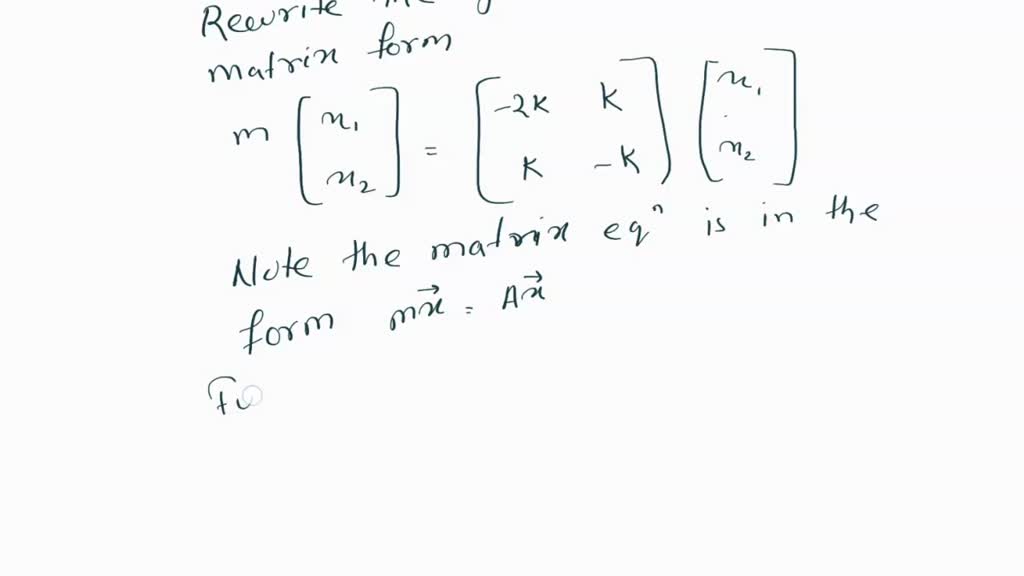 Rewrite the
matrix form
m [x₁ x₂] = [-2K K K -K] [x₁ x₂]
Note the matrix eqⁿ is in the
form mx⃗ = Ax⃗